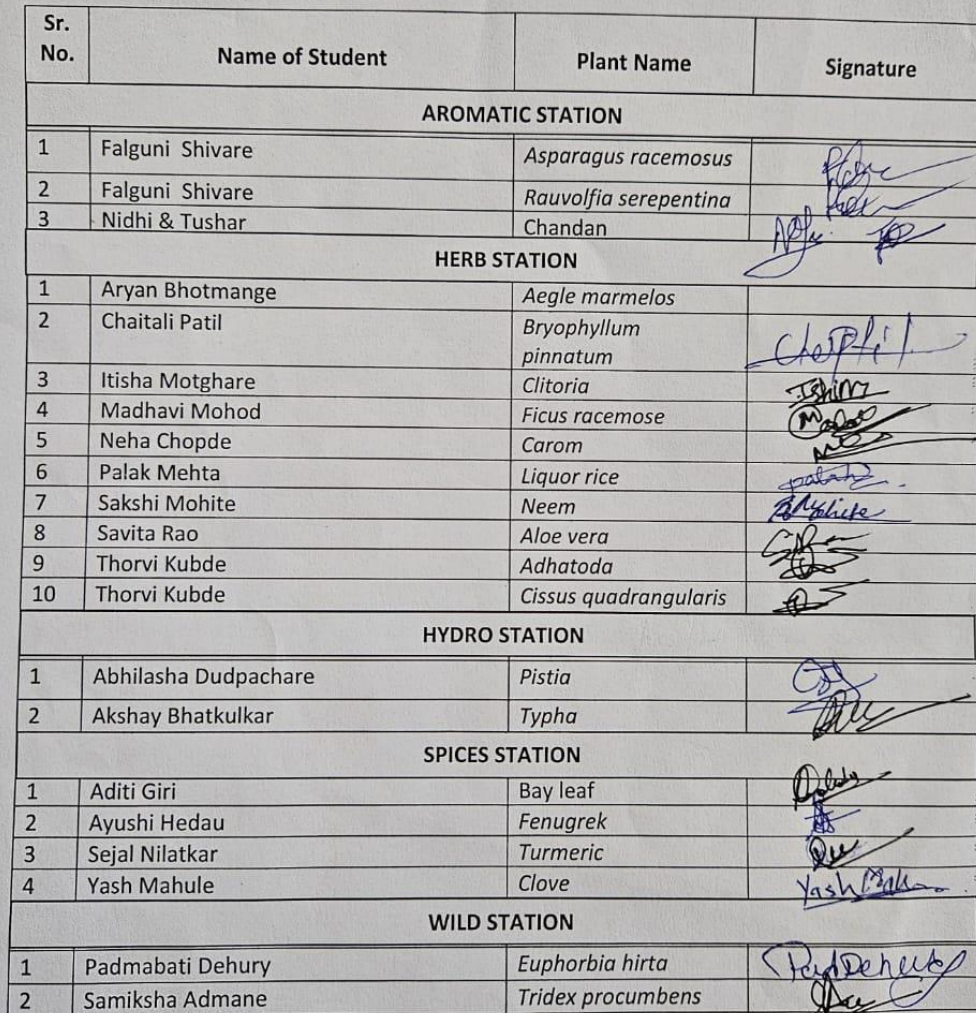 Sr. No. Name of Student Plant Name Signature
AROMATIC STATION
1 Falguni Shivare Asparagus racemosus
2 Falguni Shivare Rauvolfia serepentina
3 Nidhi & Tushar Chandan
HERB STATION
1 Aryan Bhotmange Aegle marmelos
2 Chaitali Patil Bryophyllum pinnatum
3 Itisha Motghare Clitoria
4 Madhavi Mohod Ficus racemose
5 Neha Chopde Carom
6 Palak Mehta Liquor rice
7 Sakshi Mohite Neem
8 Savita Rao Aloe vera
9 Thorvi Kubde Adhatoda
10 Thorvi Kubde Cissus quadrangularis
HYDRO STATION
1 Abhilasha Dudpachare Pistia
2 Akshay Bhatkulkar Typha
SPICES STATION
1 Aditi Giri Bay leaf
2 Ayushi Hedau Fenugrek
3 Sejal Nilatkar Turmeric
4 Yash Mahule Clove Yash
WILD STATION
1 Padmabati Dehury Euphorbia hirta
2 Samiksha Admane Tridex procumbens